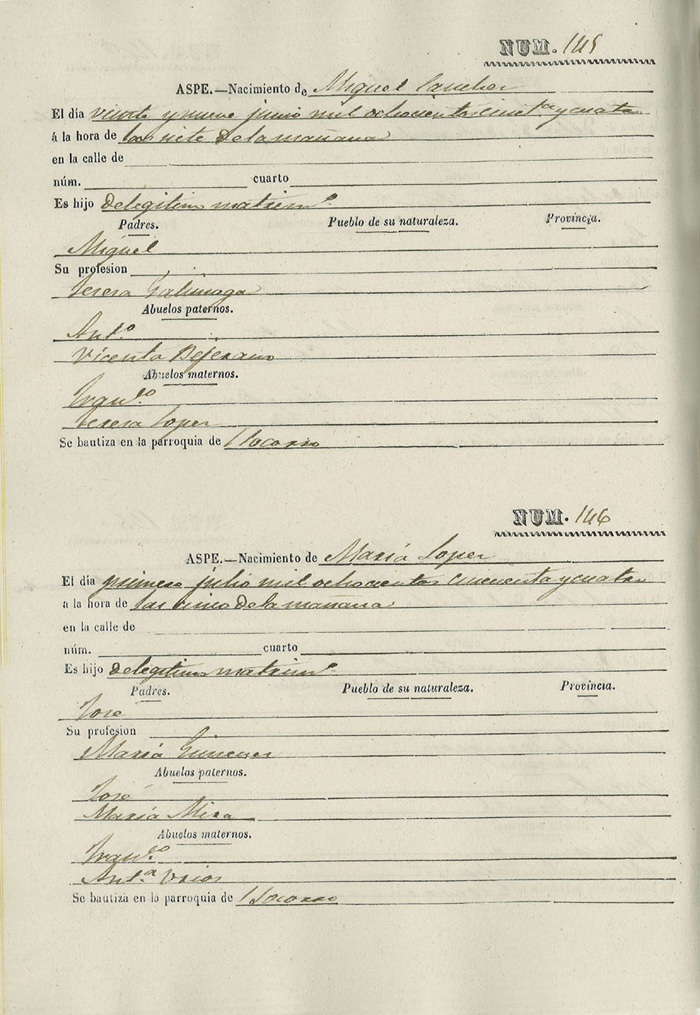 NUM. 145
ASPE.—Nacimiento de Miguel Sanchez
El día veinte y nueve junio mil ochocientos cincta y cuatro
á la hora de las siete de la mañana
en la calle de
núm. cuarto
Es hijo de legitimo matrimo
Padres. Pueblo de su naturaleza. Provincia.
Miguel
Su profesion
Teresa Galinsoga
Abuelos paternos.
Anto
Vicenta Bejerano
Abuelos maternos.
Franco
Teresa Lopez
Se bautiza en la parroquia de Socorro
NUM. 146
ASPE.—Nacimiento de María Lopez
El día primero julio mil ochocientos cincuenta y cuatro
a la hora de las cinco de la mañana
en la calle de
núm. cuarto
Es hijo de legitimo matrimo
Padres. Pueblo de su naturaleza. Provincia.
José
Su profesion
María Gimenez
Abuelos paternos.
José
María Mira
Abuelos maternos.
Franco
Anta
Se bautiza en la parroquia de Socorro